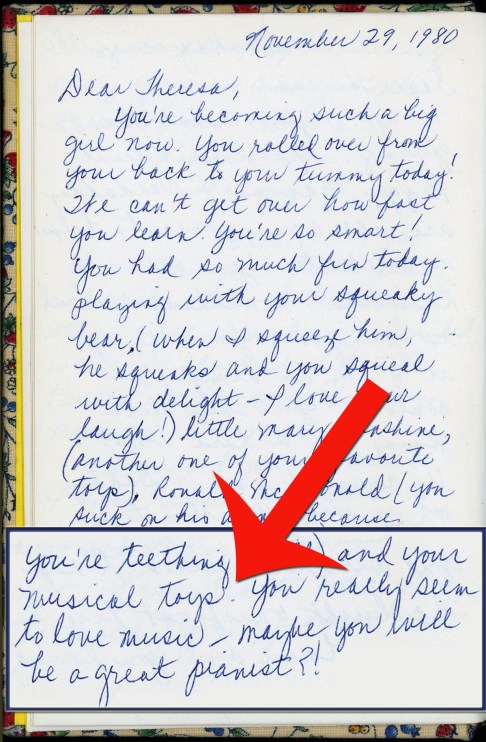 November 29, 1980
Dear Theresa,
You're becoming such a big
girl now. You rolled over from
your back to your tummy today!
We can't get over how fast
you learn. You're so smart!
You had so much fun today.
playing with your squeaky
bear, (when I squeeze him,
he squeaks and you squeal
with delight – I love
laugh!) little mary
(another one of your
toys), Ronald
suck on his because
You're teething and your
musical toys. You really seem
to love music – maybe you will
be a great pianist?!